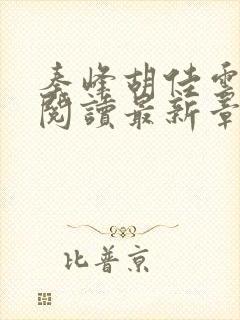 秦峰胡佳雲
閱讀最新章
比普京